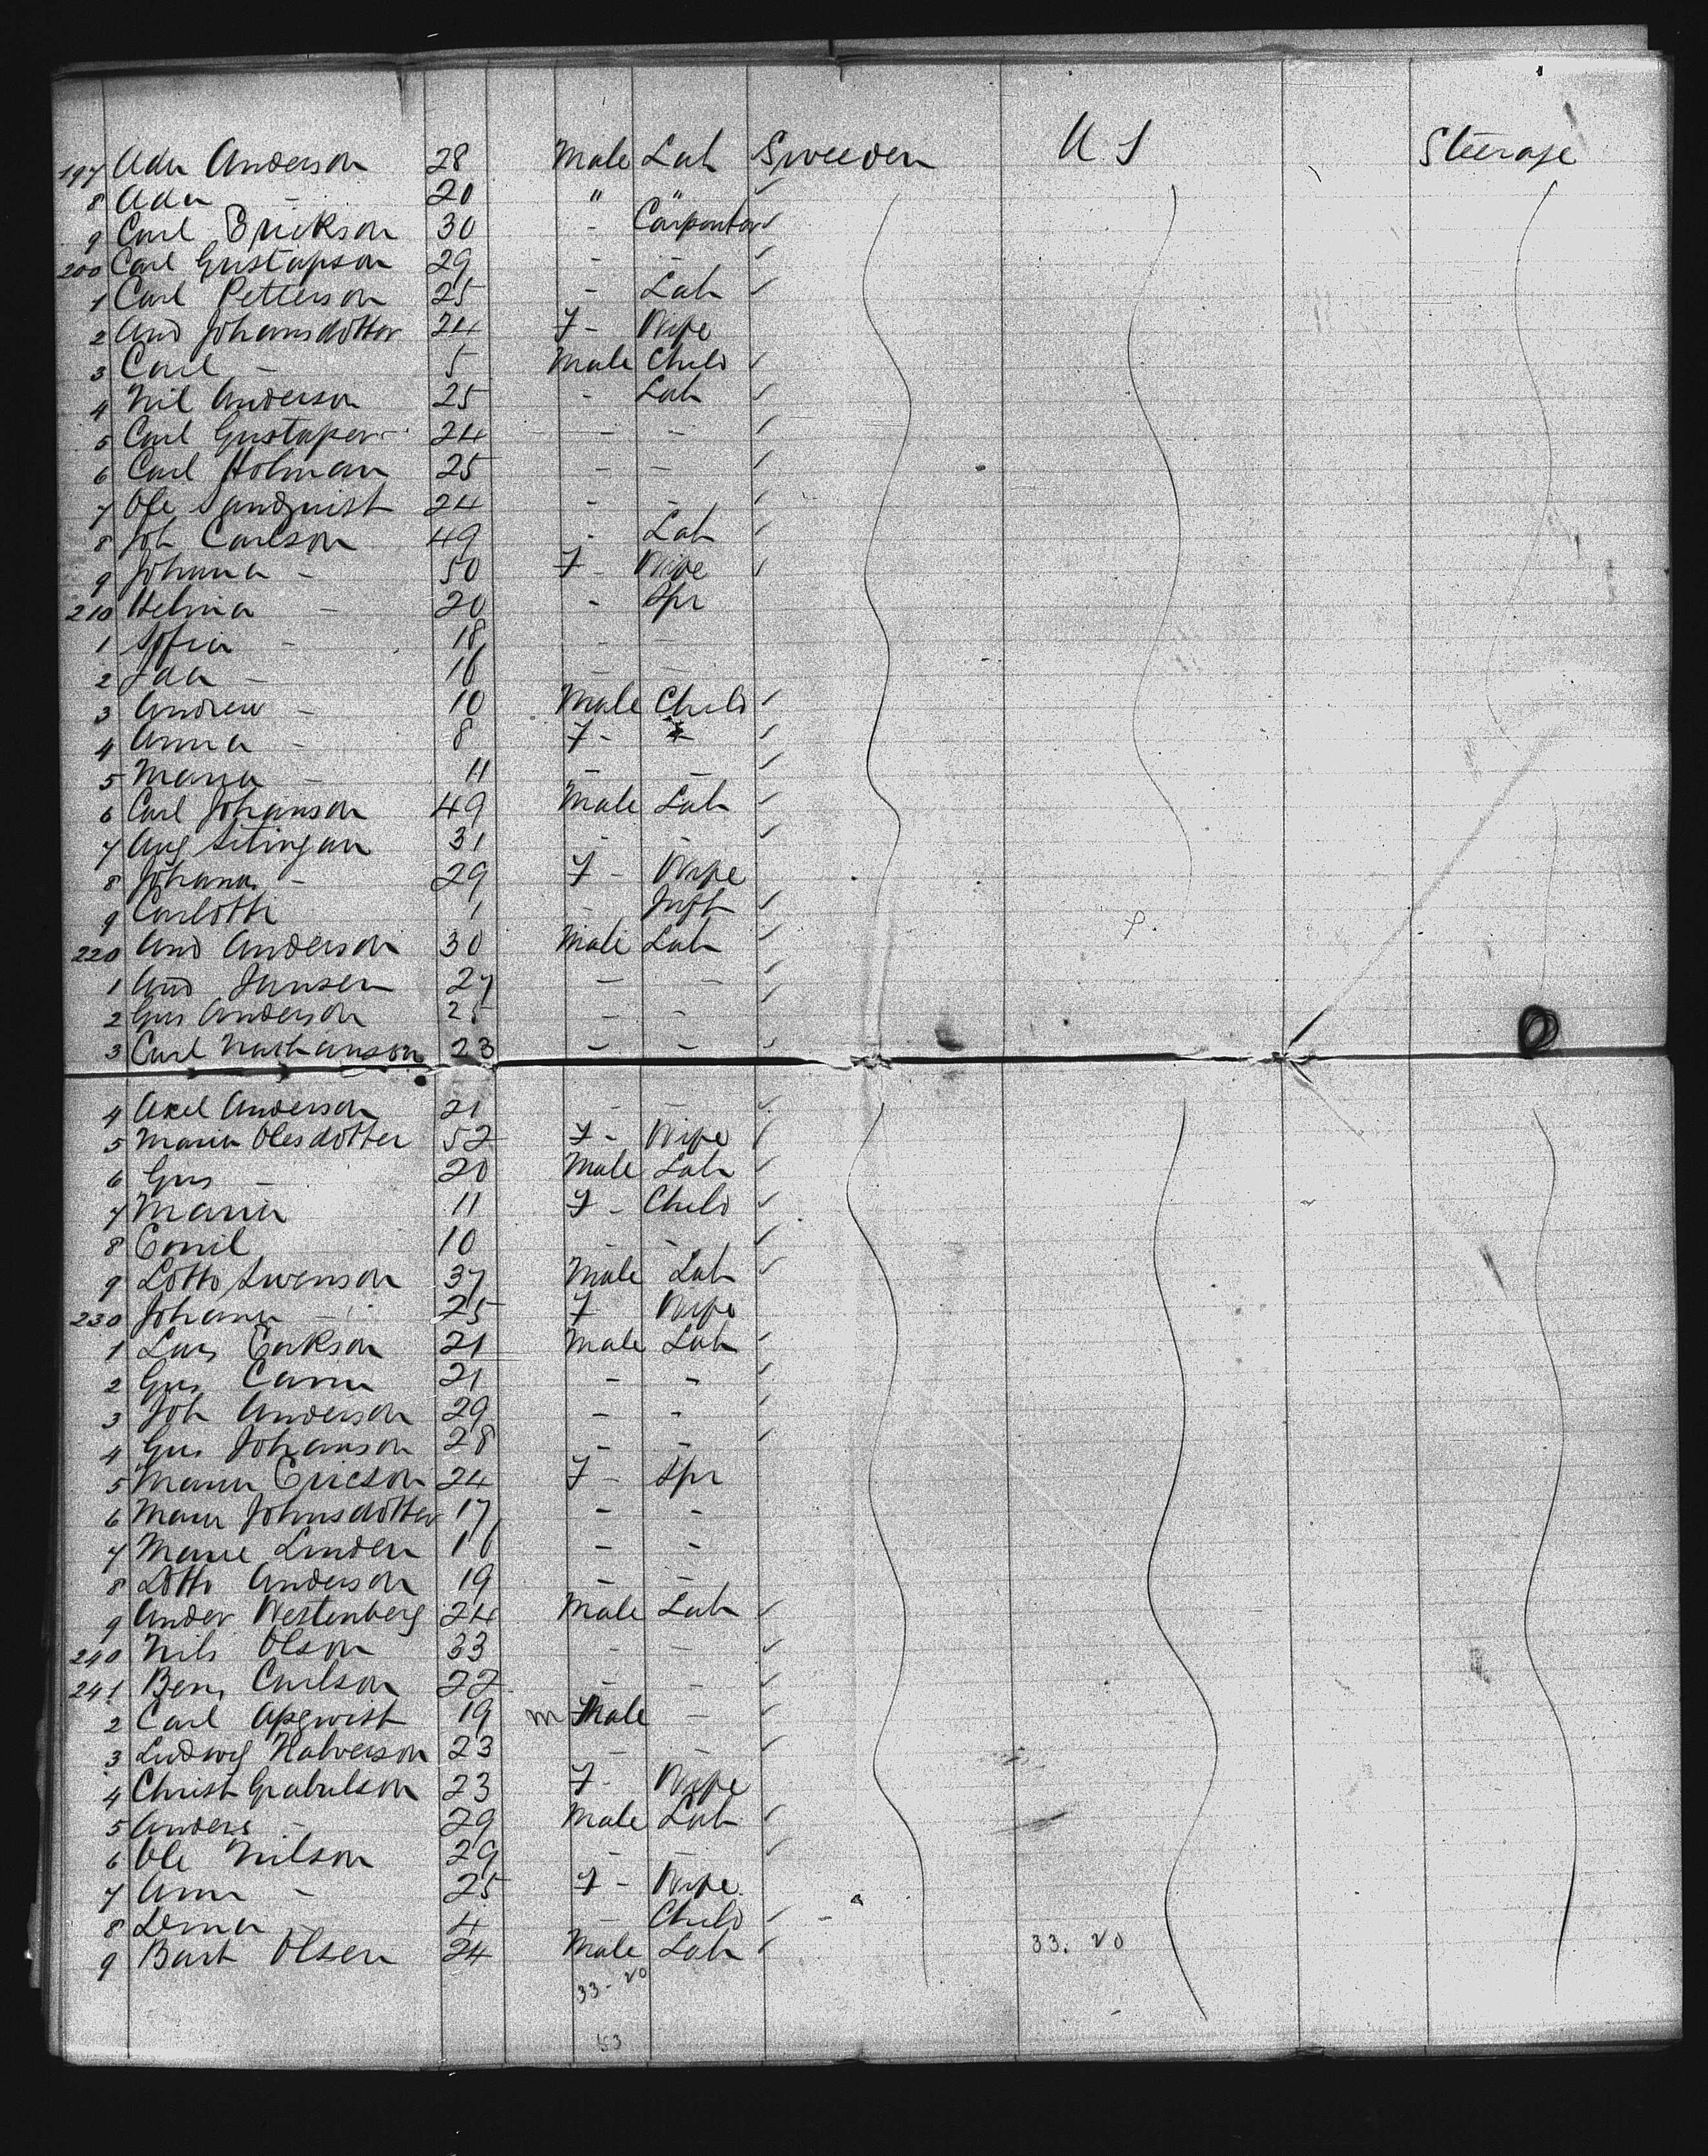 197 Adu Anderson 28 Male Lab Sweeden U S Steerage
8 Adu - 20 " "
9 Carl Erickson 30 - Carpenter
200 Carl Gustafson 29 - -
1 Carl Petterson 25 - Lab
2 And Johansdotter 24 F - Wife
3 Carl - 5 Male Child
4 Nil Anderson 25 - Lab
5 Carl Gustafson 24 - -
6 Carl Holman 25 - -
7 Ole Sandquist 24 - -
8 Joh Carlson 49 - Lab
9 Johana - 50 F - Wife
210 Helma - 20 - Spr
1 Sofia - 18 - -
2 Ida - 16 - -
3 Andrew - 10 Male Child
4 Anna - 8 F - -
5 Maria - 11 - -
6 Carl Johanson 49 Male Lab
7 Aug 31 - -
8 Johana - 29 F - Wife
9 Carlotti 1 - Inft
220 And Anderson 30 Male Lab
1 And Jansen 27 - -
2 Gus Anderson 25 - -
3 Carl Nathanson 23 - -
4 Axel Anderson 21 - -
5 Maria Olesdotter 52 F - Wife
6 Gus - 20 Male Lab
7 Maria 11 F - Child
8 Emil 10 - -
9 Lotto Swenson 37 Male Lab
230 Johana - 25 F Wife
1 Lars Erikson 21 Male Lab
2 Gus 21 - -
3 Joh Anderson 29 - -
4 Gus Johanson 28 - -
5 Maria Ericson 24 F - Spr
6 Maria Johnsdotter 17 - -
7 Marie Linden 16 - -
8 Lotto Anderson 19 - -
9 Ander Westenberg 24 Male Lab
240 Nils Olson 33 - -
241 Ben Carlson 22 - -
2 Carl 19 m Male -
3 Ludwig Halverson 23 - -
4 Christ Grabulson 23 F - Wife
5 Anders - 29 Male Lab
6 Ole Nilson 29 - -
7 Ann - 25 F - Wife
8 Lena 4 - Child
9 Bart Olsen 24 Male Lab 33. 20
33 - 20
53